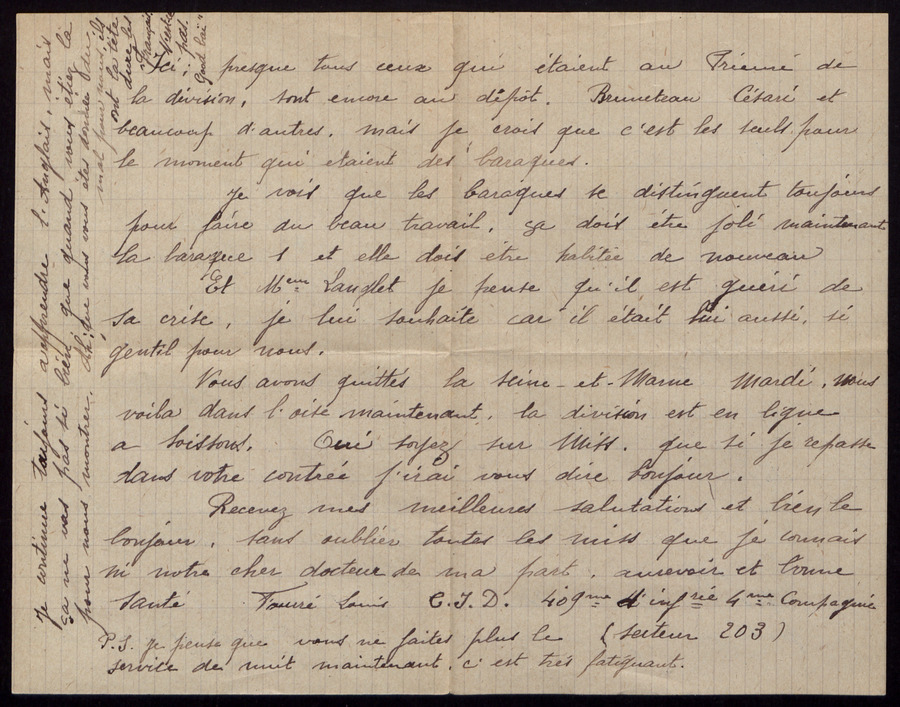 Ici, presque tous ceux qui étaient au Prieuré de
la division, sont encore au dépôt. Bruneteau Césaré et
beaucoup d'autres, mais je crois que c'est les seuls pour
le moment qui etaient des baraques.
je vois que les baraques se distinguent toujours
pour faire du beau travail, ça dois être joli maintenant
la baraque 1 et elle dois être habitée de nouveau
Et Mem Langlet je pense qu'il est guéri de
sa crise, je lui souhaite car il était lui aussi, si
gentil pour nous.
Nous avons quittés la seine-et-Marne Mardi, nous
voila dans l'oise maintenant, la division est en ligne
a Soissons. Oui soyez sur Miss. que si je repasse
dans votre contrée j'irai vous dire bonjour.
Recevez mes meilleures salutations et bien le
bonjour, sans oublier toutes les miss que je connais
ni notre cher docteur de ma part. aurevoir et bonne
santé Fouré Louis C.I.D. 409me d'infrie 4me Compagnie
(secteur 203)
P.S. je pense que vous ne faites plus le
service de nuit maintenant, c'est trés fatiguant.
Je continue toujours a apprendre l'Anglais, mais
ça ne vas pas si bien que quand vous étiez la
pour nous montrer. Ah! que vous vous êtes donnée du
mal pour nous, ils
ont la tête
dure les
Français
pas.
Good bai"